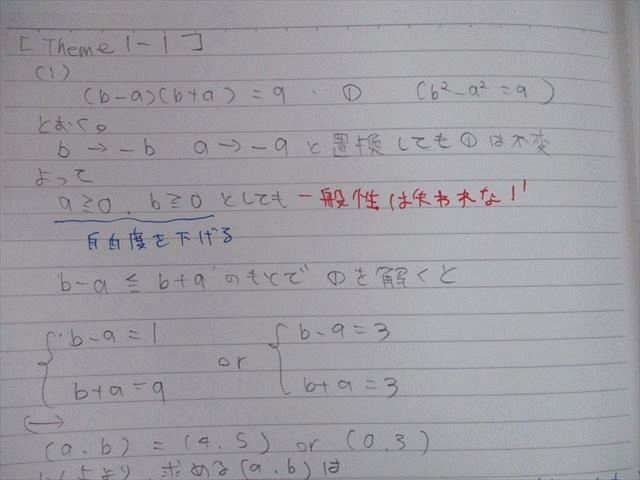 [Theme 1-1]
(1)
(b-a)(b+a) = 9 … ① (b²-a² = 9)
とおく。
b → -b a → -a と置換しても①は不変
よって
a≧0, b≧0 としても一般性は失われない
自由度を下げる
b-a ≦ b+a のもとで ①を解くと
b-a = 1 or b-a = 3
b+a = 9 b+a = 3
⟷
(a, b) = (4, 5) or (0, 3)
より, 求める(a, b)は